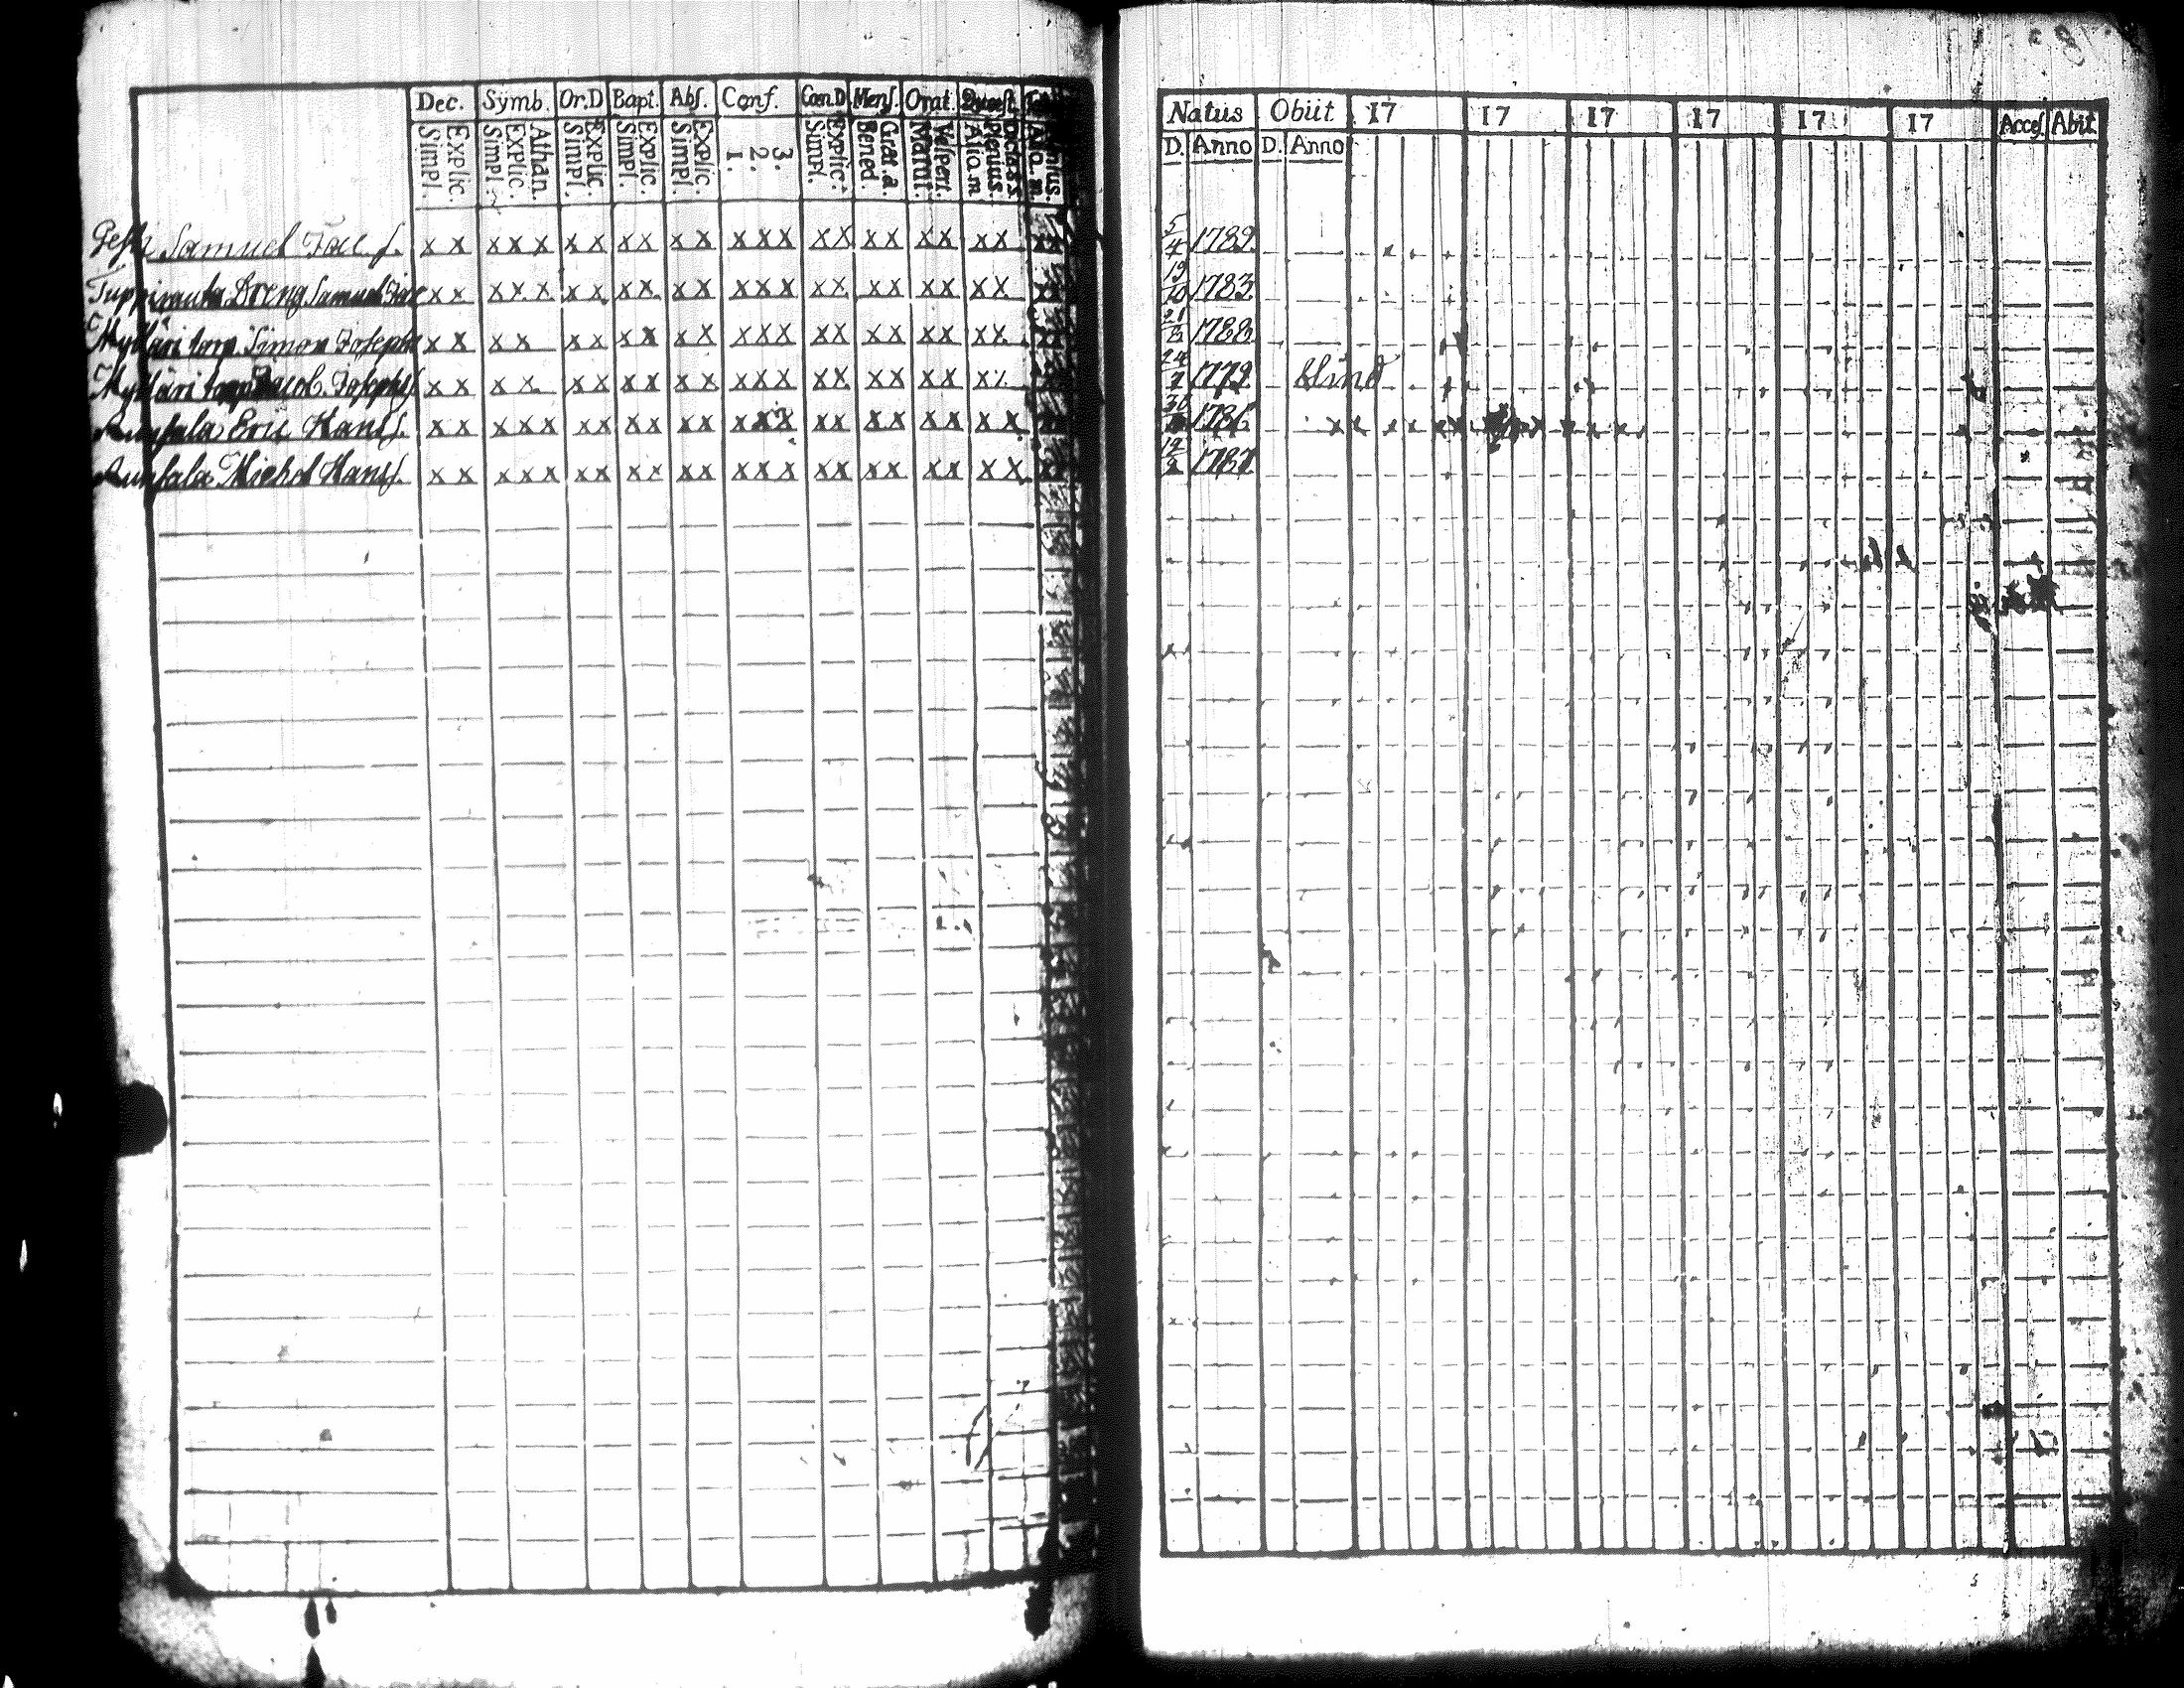 Dec. Symb. Or.D Bapt. Abs. Conf. Cœn.D Mens. Orat. Quæst.
Simpl. Explic. Simpl. Explic. Athan. Simpl. Explic. Simpl. Explic. Simpl. Explic. 1. 2. 3. Simpl. Explic. Bened. Grat.a. Matut. Vesperi. Alio m Plenius.
Samuel Jac. s. x x x x x x x x x x x x x x x x x x x x x x
Dreng Samuel Jac x x x x x x x x x x x x x x x x x x x x x x
Mylläri torp. Simon Josephs x x x x x x x x x x x x x x x x x x x x x
Mylläri torp Jacob. Josephs. x x x x x x x x x x x x x x x x x x x x x
Eric Hanss. x x x x x x x x x x x x x x x x x x x x x x
Michel Hanss. x x x x x x x x x x x x x x x x x x x x x x
Natus Obiit 17 17 17 17 17 17 Acces. Abit
D. Anno D. Anno
5/4 1789
19/10 1783
1788
24/7 1779 blind
1786
12/2 1787